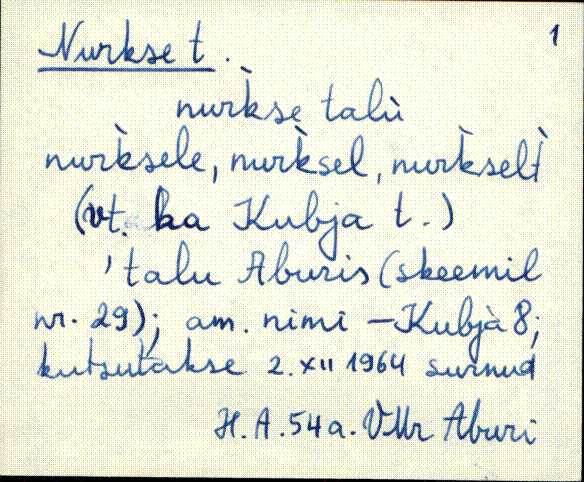 1
Nurkse t.
nur̀kse talù
nur̀ksele, nur̀ksel, nur̀kselt̀
(vt. ka Kubja t.)
'talu Aburis (skeemil
nr. 29); am. nimi – Kubjà 8;
kutsutakse 2. XII 1964 surnud
H. A. 54 a. VMr Aburi